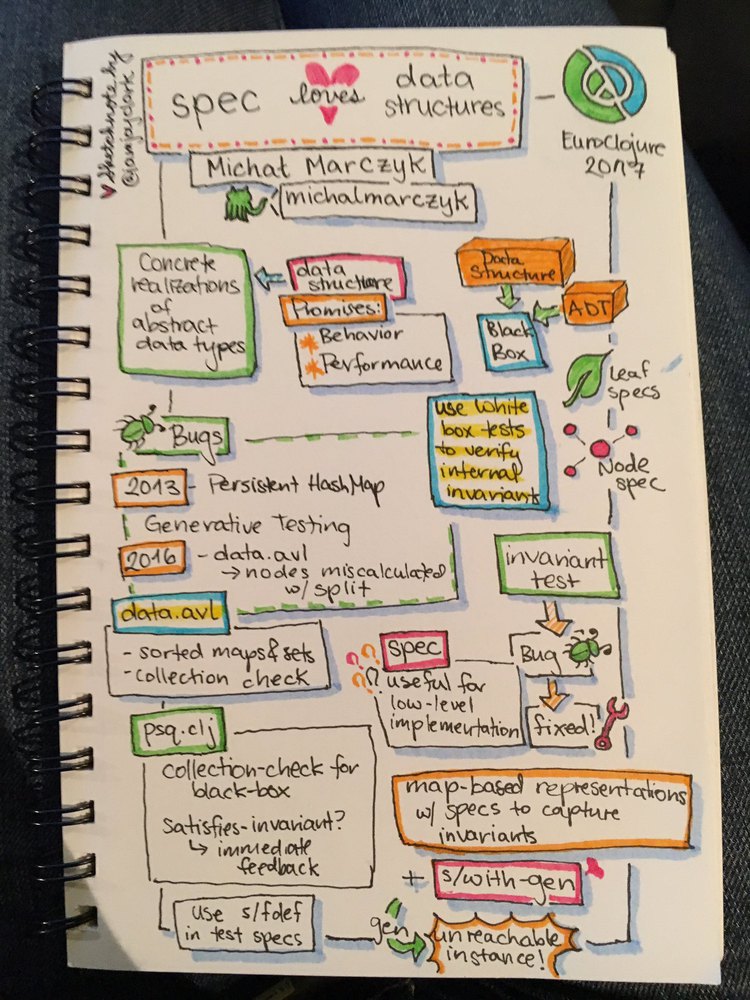 ♥ Sketchnote by
@iamjaydark
spec loves data
structures
EuroClojure
2017
Michał Marczyk
michalmarczyk
Concrete
realizations
of
abstract
data types
data
structure
Promises:
* Behavior
* Performance
Data
Structure
ADT
Black
Box
Leaf
specs
Node
spec
use white
box tests
to verify
internal
invariants
Bugs
2013 - Persistent HashMap
Generative Testing
2016 - data.avl
→ nodes miscalculated
w/ split
data.avl
- sorted maps & sets
- collection check
invariant
test
Bug
fixed!
spec
??
useful for
low-level
implementation
psq.clj
collection-check for
black-box
Satisfies-invariant?
↳ immediate
feedback
map-based representations
w/ specs to capture
invariants
+ s/with-gen
use s/fdef
in test specs
gen
unreachable
instance!